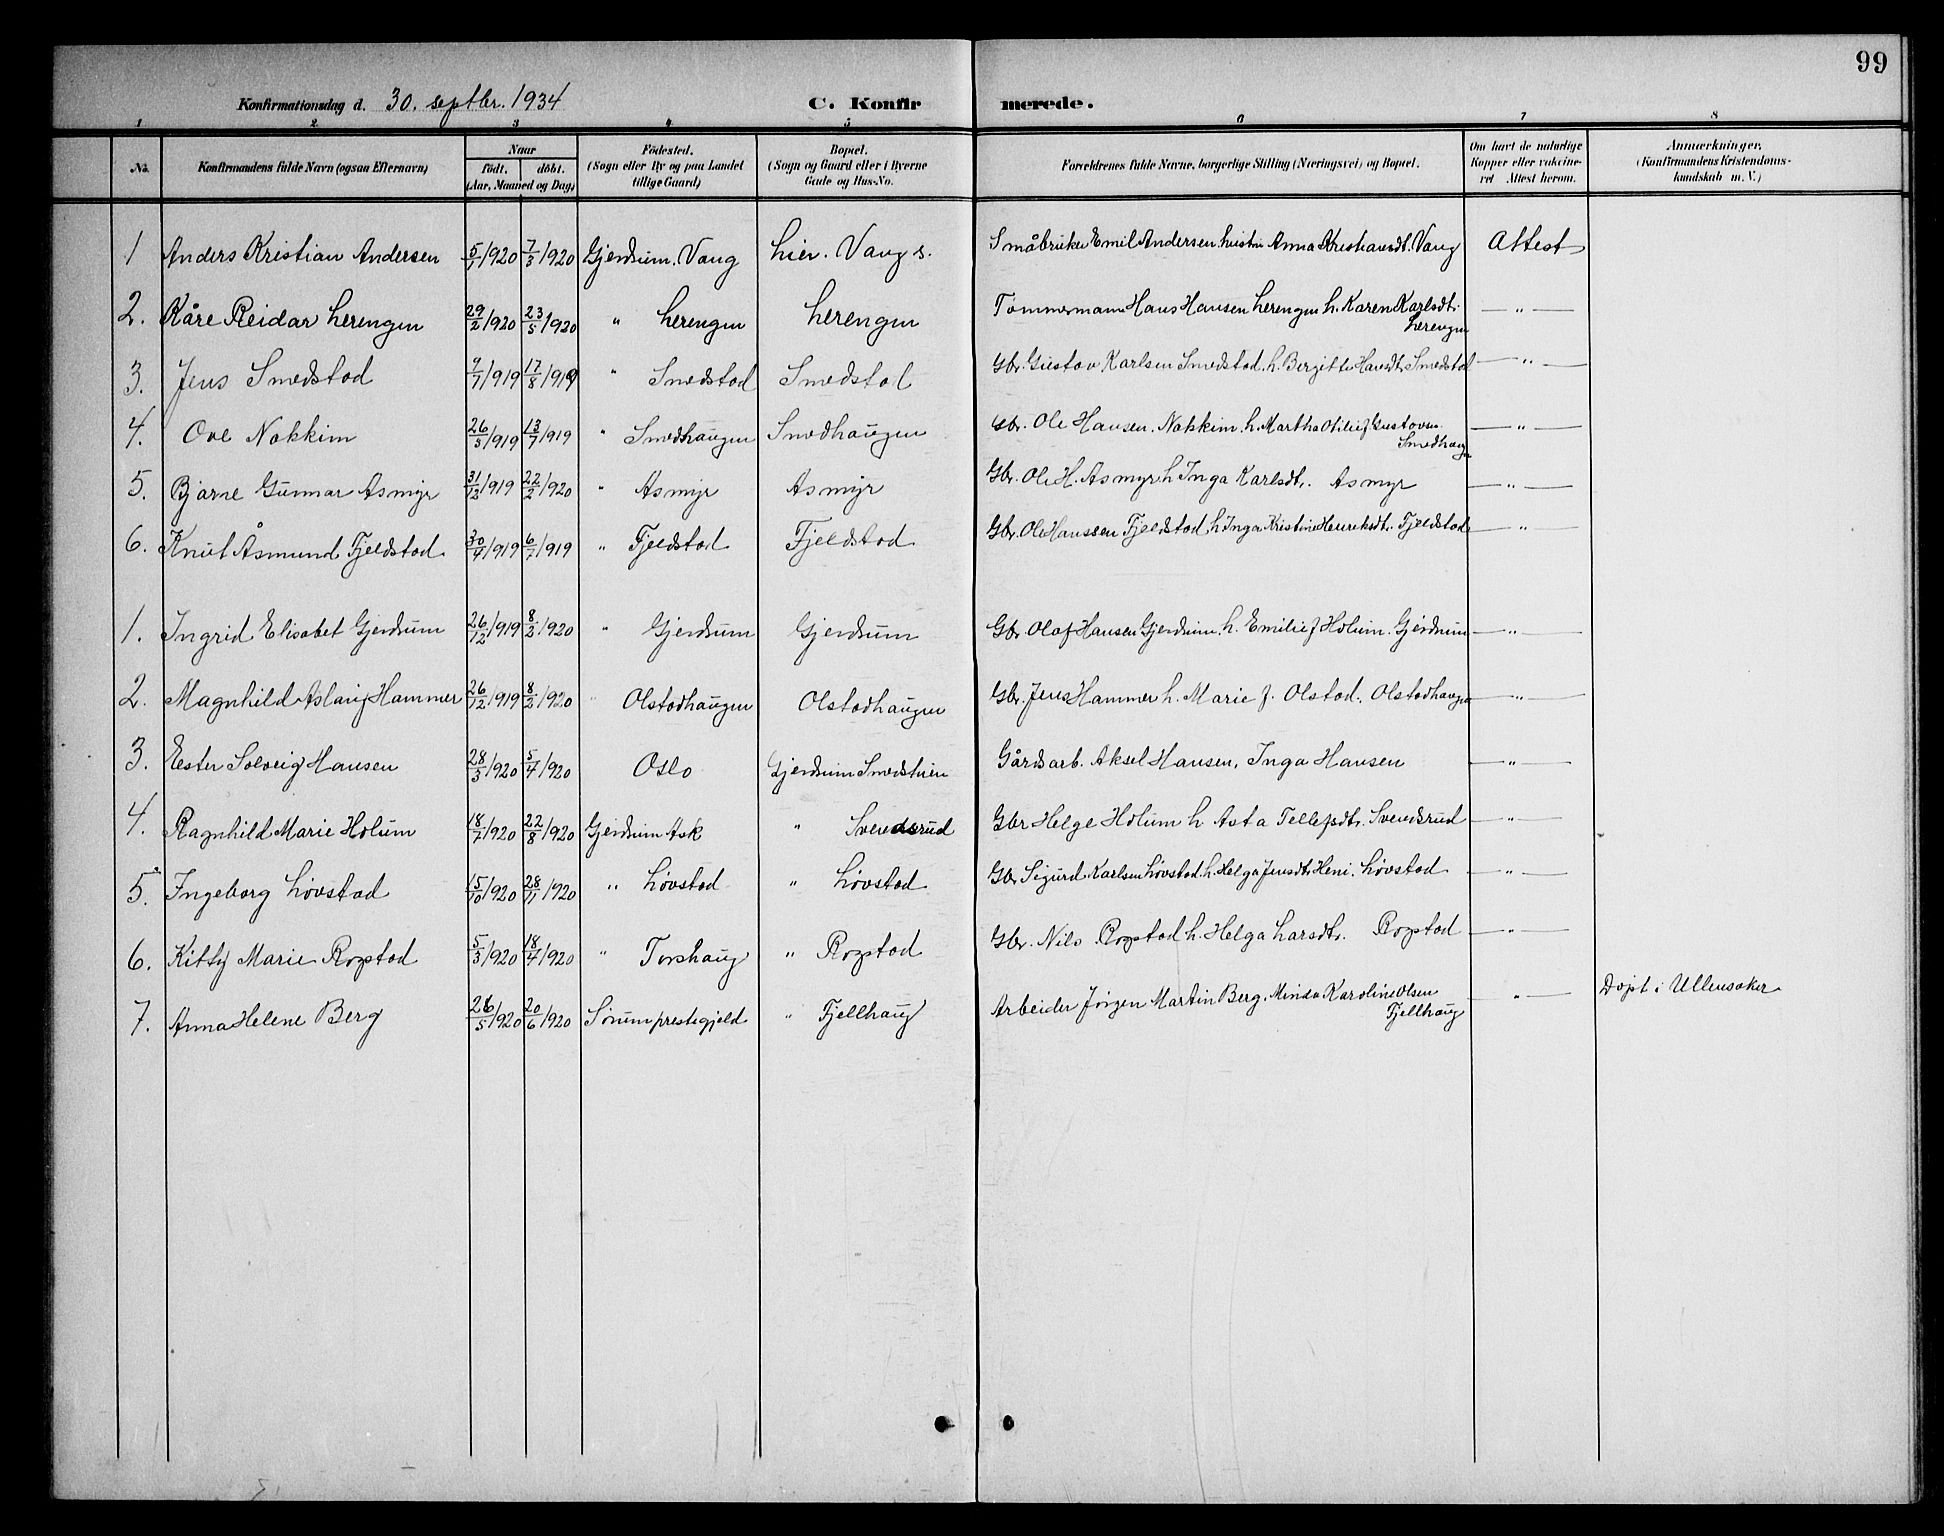 99
Konfirmationsdag d. 30. septbr. 1934 C. Konfirmerede.
1 2 3 4 5 6 7 8
No. Konfirmandens fulde Navn (ogsaa Efternavn) Naar födt. döbt. (Aar, Maaned og Dag) Födested. (Sogn eller By og paa Landet tillige Gaard) Bopæl. (Sogn og Gaard eller i Byerne Gade og Hus-No. Forældrenes fulde Navne, borgerlige Stilling (Næringsvei) og Bopæl. Om havt de naturlige Kopper eller vaccineret Attest herom. Anmærkninger. (Konfirmandens Kristendomskundskab m. V.)
1 Anders Kristian Andersen 5/1 1920 7/3 1920 Gjerdrum. Vang hier. Vang s. Småbruker Emil Andersen. hustru Anna Kristiansdt. Vang Attest
2. Kåre Reidar Lerengen 29/2 1920 23/5 1920 " Lerengen Lerengen Tømmermann Hans Hansen Lerengen h. Karen Karlsdt. Lerengen — " —
3. Jens Smedstad 9/7 1919 17/8 1919 " Smedstad Smedstad Gbr. Gustav Karlsen Smedstad. h. Bergitte Smedstad — " —
4. Ove Nakkim 26/5 1919 13/7 1919 " Smedhaugen Smedhaugen Gbr. Ole Hansen. Nakkim. h. Martha Otilie f Gustavsen. Smedhaugen — " —
5. Bjarne Gunnar Asmyr 31/12 1919 22/2 1920 " Asmyr Asmyr Gbr. Ole H. Asmyr h Inga Karlsdt. Asmyr — " —
6. Knut Åsmund Fjeldstad 30/4 1919 6/7 1919 " Fjeldstad Fjeldstad Gbr. Ole Hanssen Fjeldstad h Inga Kristine Henriksdt. Fjeldstad — " —
1. Ingrid Elisabet Gjerdrum 26/12 1919 8/2 1920 " Gjerdrum Gjerdrum Gbr. Olaf Hansen Gjerdrum. h. Emilie f Holum. Gjerdrum — " —
2. Magnhild Aslaug Hammer 26/12 1919 8/2 1920 " Olstadhaugen Olstadhaugen Gbr. Jens Hammer h. Marie f. Olstad. Olstadhaugen — " —
3. Ester Solveig Hansen 28/3 1920 5/4 1920 Oslo Gjerdrum Smedstuen Gårdsarb. Aksel Hansen, Inga Hansen — " —
4. Ragnhild Marie Holum 18/7 1920 22/8 1920 Gjerdrum Ask " Svendsrud Gbr Helge Holum h Asta Tellefsdt. Svendsrud — " —
5. Ingeborg Løvstad 15/10 1920 28/11 1920 " Løvstad " Løvstad Gbr Sigurd Karlsen Løvstad. h. Helga Jensdt. Heni. Løvstad — " —
6. Kitty Marie Rogstad 5/3 1920 18/4 1920 " Torshaug " Rogstad Gbr. Nils Rogstad h. Helga Larsdt. Rogstad — " —
7. Anna Helene Berg 26/5 1920 20/6 1920 Sørum prestegjeld " Fjellhaug Arbeider Jørgen Martin Berg. Minda Karoline Olsen Fjellhaug — " — Døpt i Ullensaker